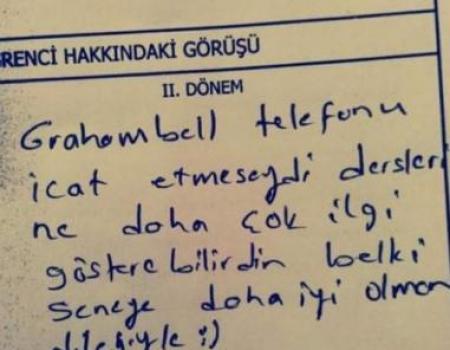 RENCİ HAKKINDAKİ GÖRÜŞÜ
II. DÖNEM
Grahambell telefonu
icat etmeseydi dersleri
ne daha çok ilgi
gösterebilirdin belki
Seneye daha iyi olman
dileğiyle :)